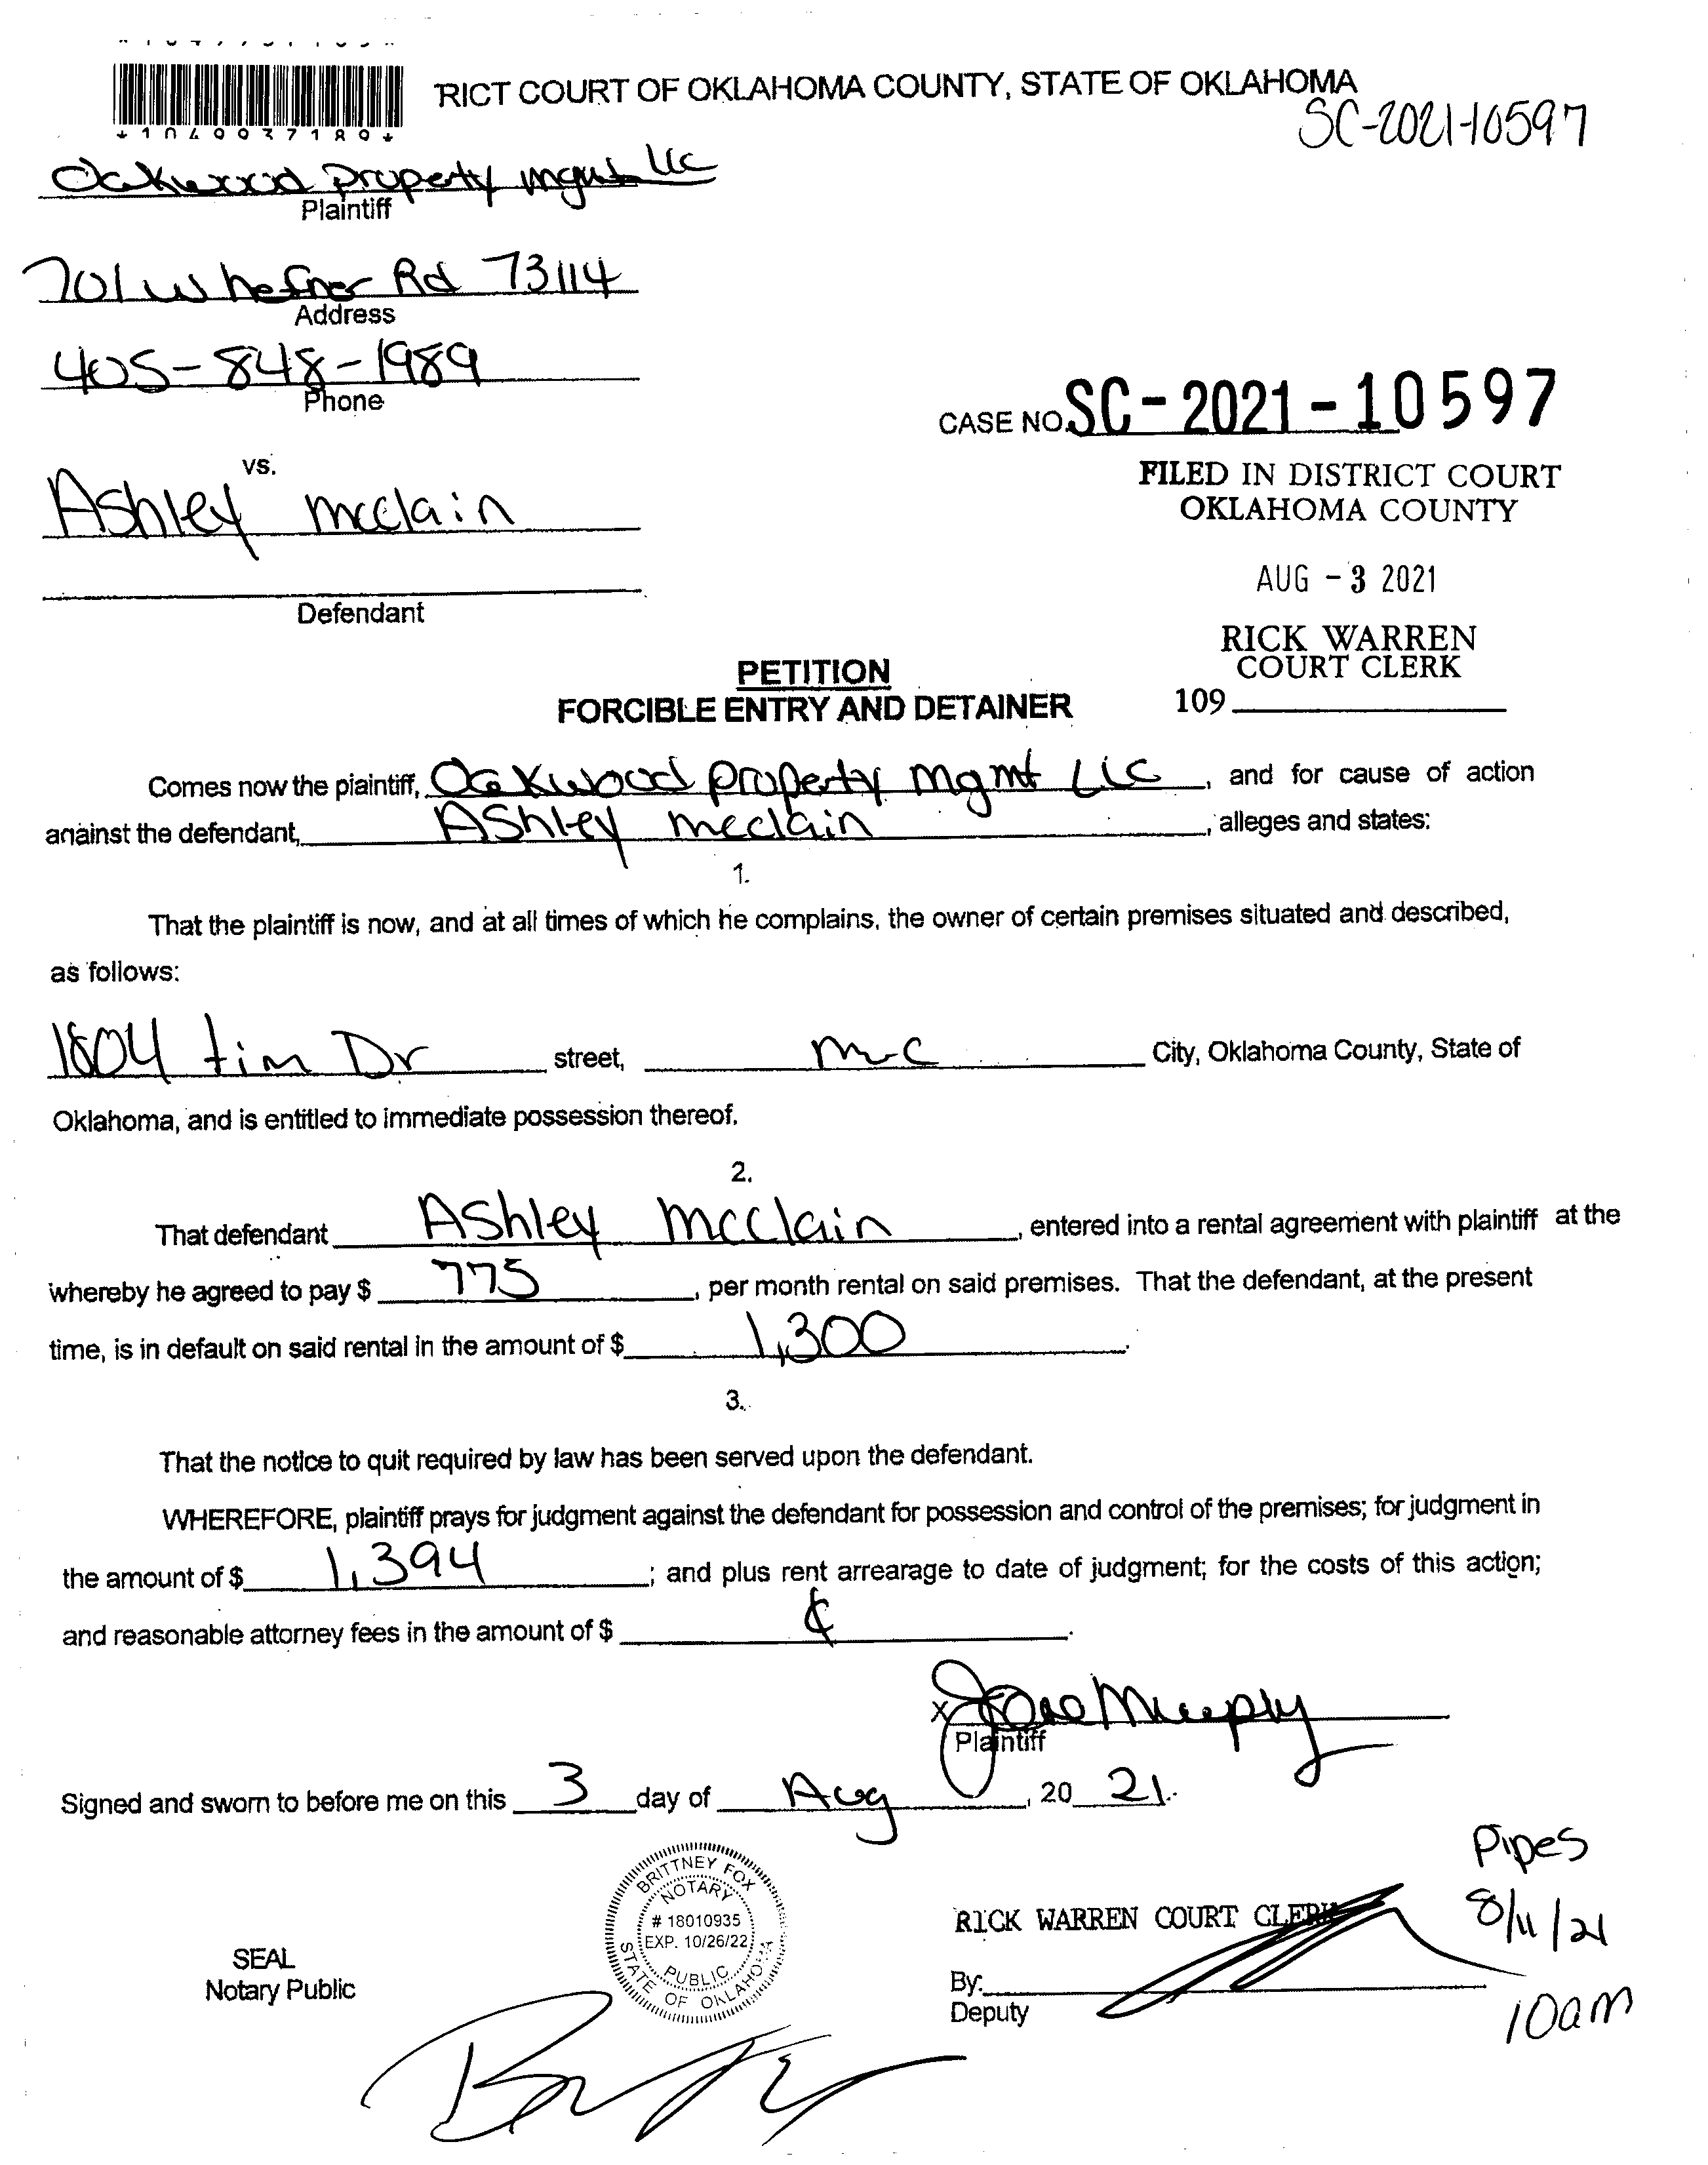 *1049937189*
RICT COURT OF OKLAHOMA COUNTY, STATE OF OKLAHOMA
SC-2021-10597
Oakwood property mgmt LLC
Plaintiff
701 W hefner Rd 73114
Address
405-848-1989
Phone
CASE NO. SC-2021-10597
vs.
FILED IN DISTRICT COURT
OKLAHOMA COUNTY
Ashley mcclain
AUG -3 2021
Defendant
RICK WARREN
COURT CLERK
109
PETITION
FORCIBLE ENTRY AND DETAINER
Comes now the plaintiff, Oakwood property mgmt LLC, and for cause of action
against the defendant, Ashley mcclain, alleges and states:
1.
That the plaintiff is now, and at all times of which he complains, the owner of certain premises situated and described,
as follows:
1804 tim Dr street, mc City, Oklahoma County, State of
Oklahoma, and is entitled to immediate possession thereof.
2.
That defendant Ashley mcclain, entered into a rental agreement with plaintiff at the
whereby he agreed to pay $ 775, per month rental on said premises. That the defendant, at the present
time, is in default on said rental in the amount of $ 1,300.
3.
That the notice to quit required by law has been served upon the defendant.
WHEREFORE, plaintiff prays for judgment against the defendant for possession and control of the premises; for judgment in
the amount of $ 1,394; and plus rent arrearage to date of judgment; for the costs of this action;
and reasonable attorney fees in the amount of $ ¢.
X Murphy
Plaintiff
Signed and sworn to before me on this 3 day of Aug, 20 21.
Pipes
8/11/21
10am
BRITTNEY FOX
NOTARY
# 18010935
EXP. 10/26/22
PUBLIC
STATE OF OKLAHOMA
RICK WARREN COURT CLERK
SEAL
Notary Public
By:
Deputy